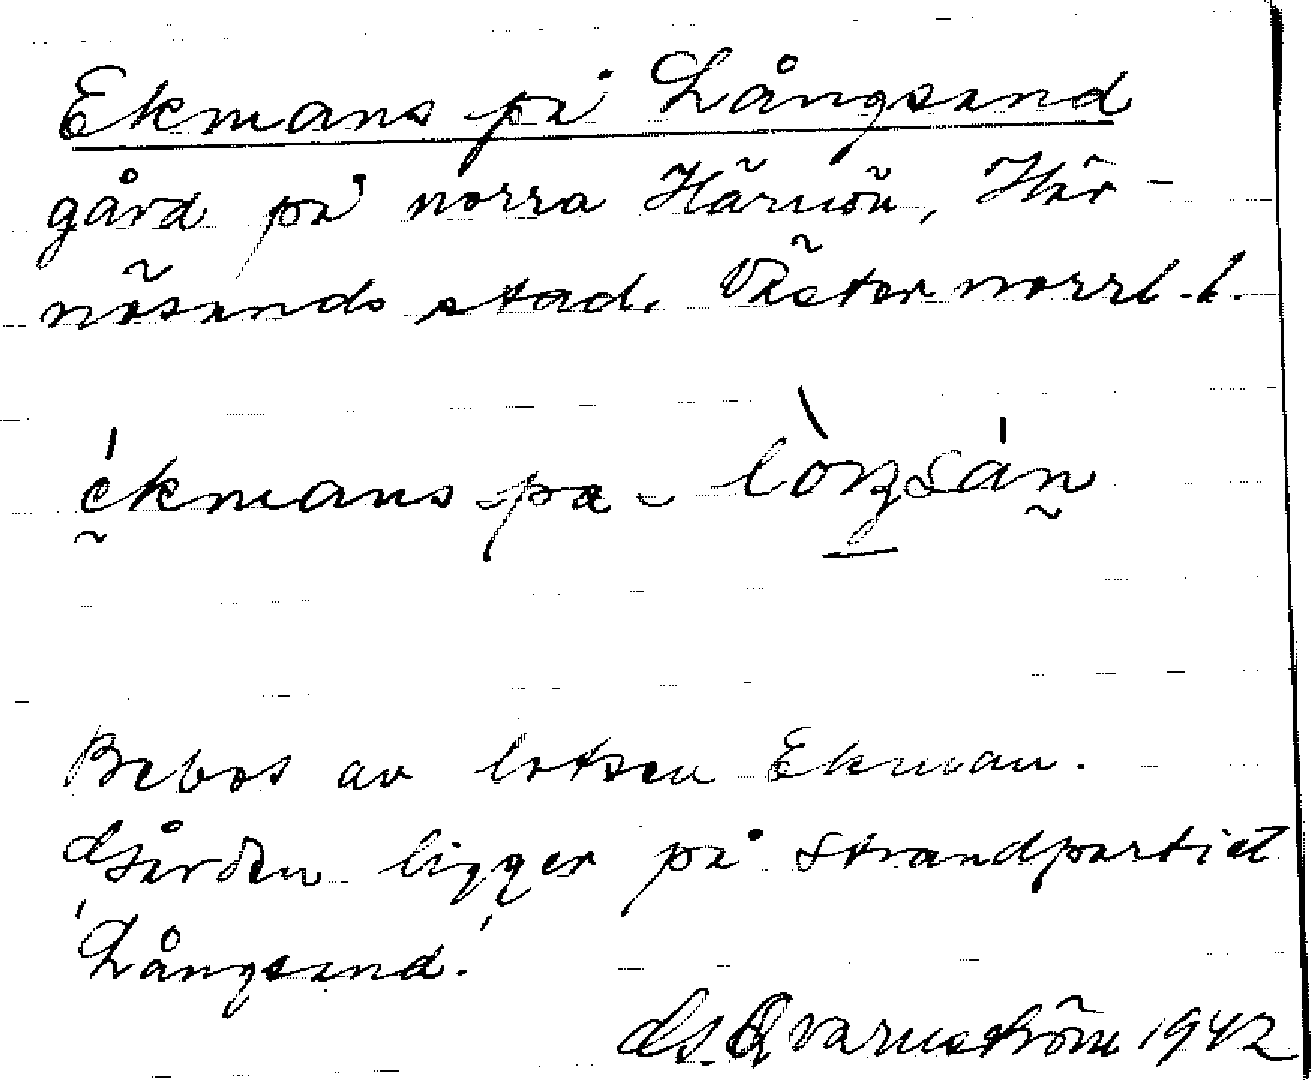 Ekmans på Långsand
gård på norra Härnön, Här-
nösands stad. Västernorrl. l.
ékmans pa - lòŋsán
Bebos av lotsen Ekman.
Gården ligger på strandpartiet
'Långsand.'
G. Qvarnström 1942